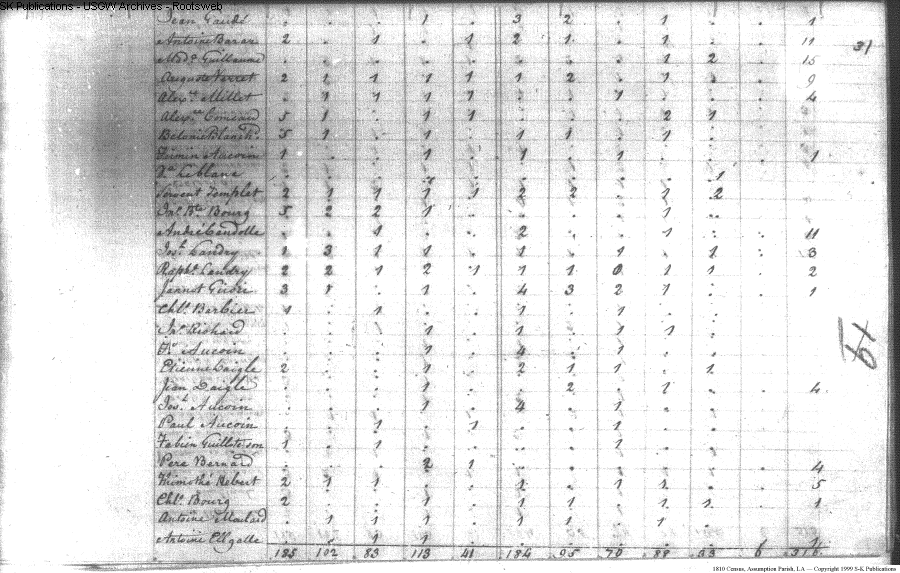 SK Publications - USGW Archives - Rootsweb
Jean Gaude . . . 1 . 3 2 . 1 . . 1
Antoine Barar 2 . 1 . 1 2 1 . 1 . . 11
31
Mad. Guillaume . . . . . . . . 1 2 . 15
Auguste Verret 2 1 1 1 1 1 2 . 1 . . 9
Alex. Millet . 1 1 1 1 . . 1 . . . 4
Alex. Comeaud 5 1 . 1 1 . . . 2 1 .
5 1 . 1 . 1 1 . 1 . .
Firmin Aucoin 1 . . 1 . 1 . 1 . . . 1
Ve Leblanc . . . . . . . . . 1 .
Templet 2 1 1 1 1 2 2 . 1 2 .
Jn. Bte Bourg 5 2 2 1 . . . . 1 . .
André . . 1 . . 2 . . 1 . . 11
Jos. Landry 1 3 1 1 . 1 . 1 . 1 . 3
Raph. Landry 2 2 1 2 1 1 1 0 1 1 . 2
Jannot 3 1 . 1 . 4 3 2 1 . . 1
Chls. Barbier 1 . 1 . . 1 . 1 . . .
Jn. Richard . . . 1 . 1 . 1 1 . .
Fs. Aucoin . . . 1 . 4 . 1 . . .
Etienne Daigle 2 . . 1 . 2 1 1 . 1 .
Jean Daigle . . . 1 . . 2 . 1 . . 4
Jos. Aucoin . . . 1 . 4 . 1 . . .
Paul Aucoin . . 1 . 1 . . 1 . . .
Fabien Guillot son 1 . 1 . . . . 1 . . .
Pere Bernard . . . 2 1 . . . . . . 4
Thimothé Hebert 2 1 1 . . 1 . 1 1 . . 5
Chls. Bourg 2 . . 1 . 1 1 1 1 1 . 1
Antoine . 1 1 1 . 1 1 . 1 . .
Antoine . . 1 1 . . . . . . . 1
185 102 83 113 41 184 95 70 88 33 6 316
61
1810 Census, Assumption Parish, LA — Copyright 1999 S-K Publications